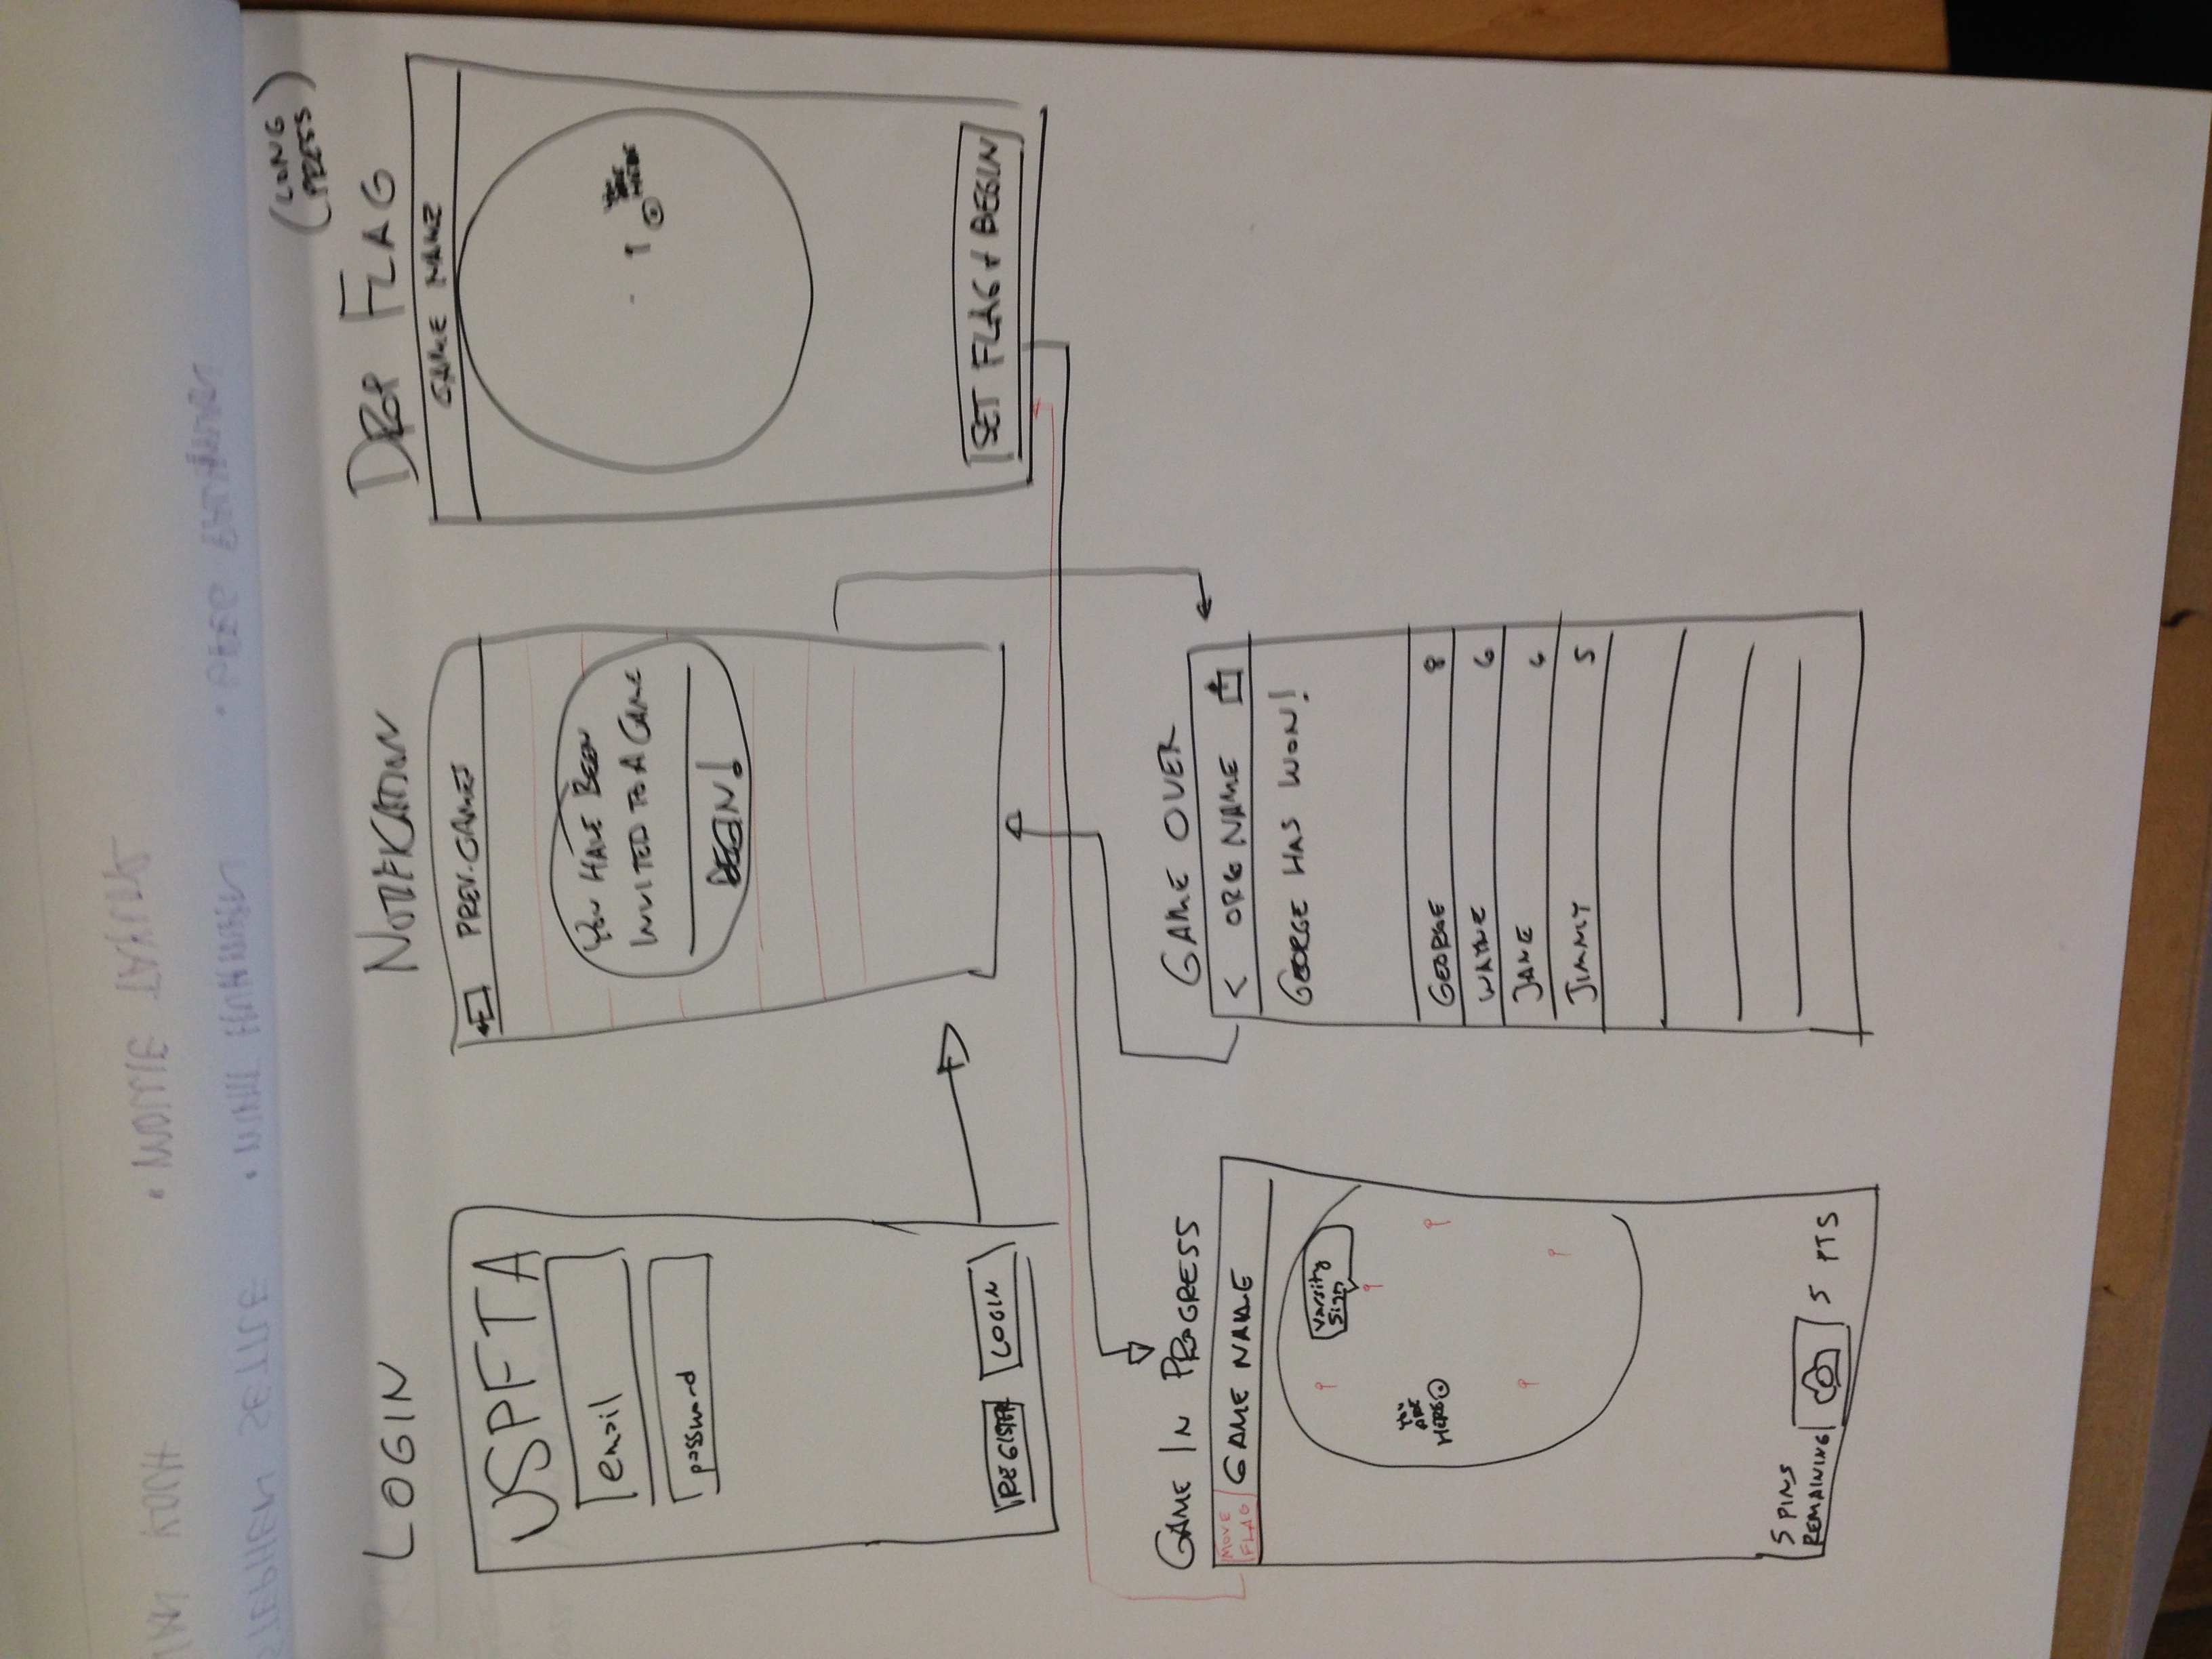 STEPHEN SETTLE
(LONG
PRESS)
LOGIN
USPFTA
email
password
REGISTER
LOGIN
NOTIFICATION
PREV. GAMES
YOU HAVE BEEN
INVITED TO A GAME
BEGIN!
DROP FLAG
GAME NAME
YOU
ARE
HERE
SET FLAG + BEGIN
GAME IN PROGRESS
MOVE
FLAG
GAME NAME
Varsity
Sign
YOU
ARE
HERE
5 PINS
REMAINING
5 PTS
GAME OVER
< ORG NAME
GEORGE HAS WON!
GEORGE 8
WAYNE 6
JANE 6
JIMMY 5